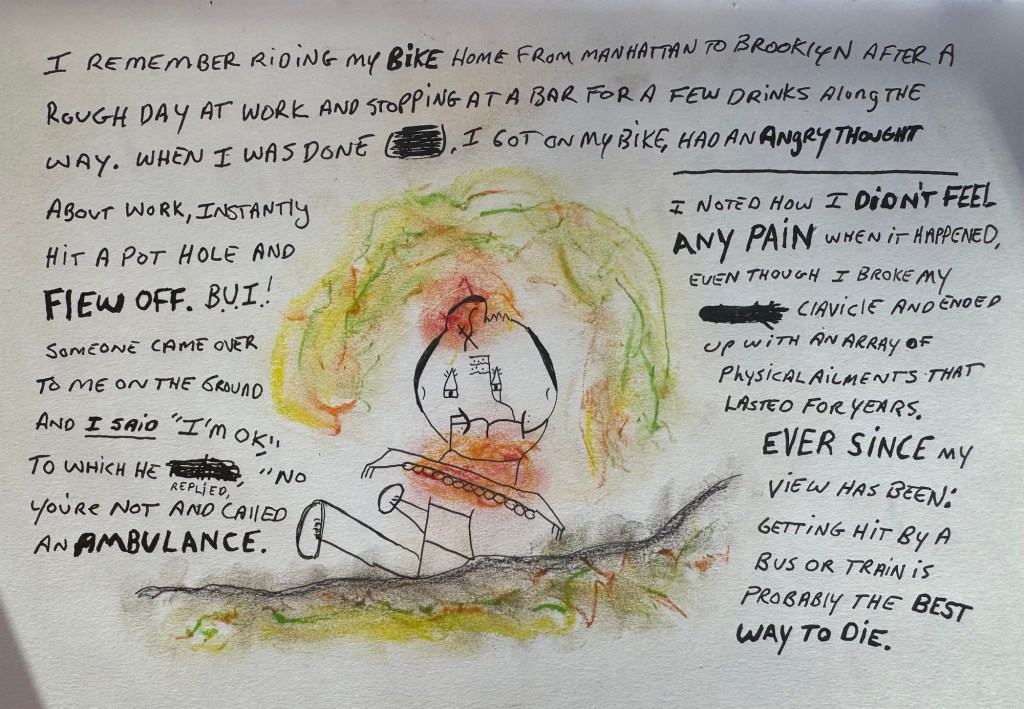 I REMEMBER RIDING MY BIKE HOME FROM MANHATTAN TO BROOKLYN AFTER A
ROUGH DAY AT WORK AND STOPPING AT A BAR FOR A FEW DRINKS ALONG THE
WAY. WHEN I WAS DONE ( ), I GOT ON MY BIKE, HAD AN ANGRY THOUGHT
ABOUT WORK, INSTANTLY
HIT A POT HOLE AND
FLEW OFF. B.U.I.!
SOMEONE CAME OVER
TO ME ON THE GROUND
AND I SAID "I'M OK",
TO WHICH HE REPLIED, "NO
YOU'RE NOT AND CALLED
AN AMBULANCE.
I NOTED HOW I DIDN'T FEEL
ANY PAIN WHEN IT HAPPENED,
EVEN THOUGH I BROKE MY
CLAVICLE AND ENDED
UP WITH AN ARRAY OF
PHYSICAL AILMENTS THAT
LASTED FOR YEARS.
EVER SINCE MY
VIEW HAS BEEN:
GETTING HIT BY A
BUS OR TRAIN IS
PROBABLY THE BEST
WAY TO DIE.